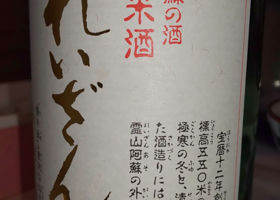 蘇の酒
米酒
れいざん
宝暦十二年創
標高五五〇米の
極寒の冬と、清
た酒造りには
霊山阿蘇の外